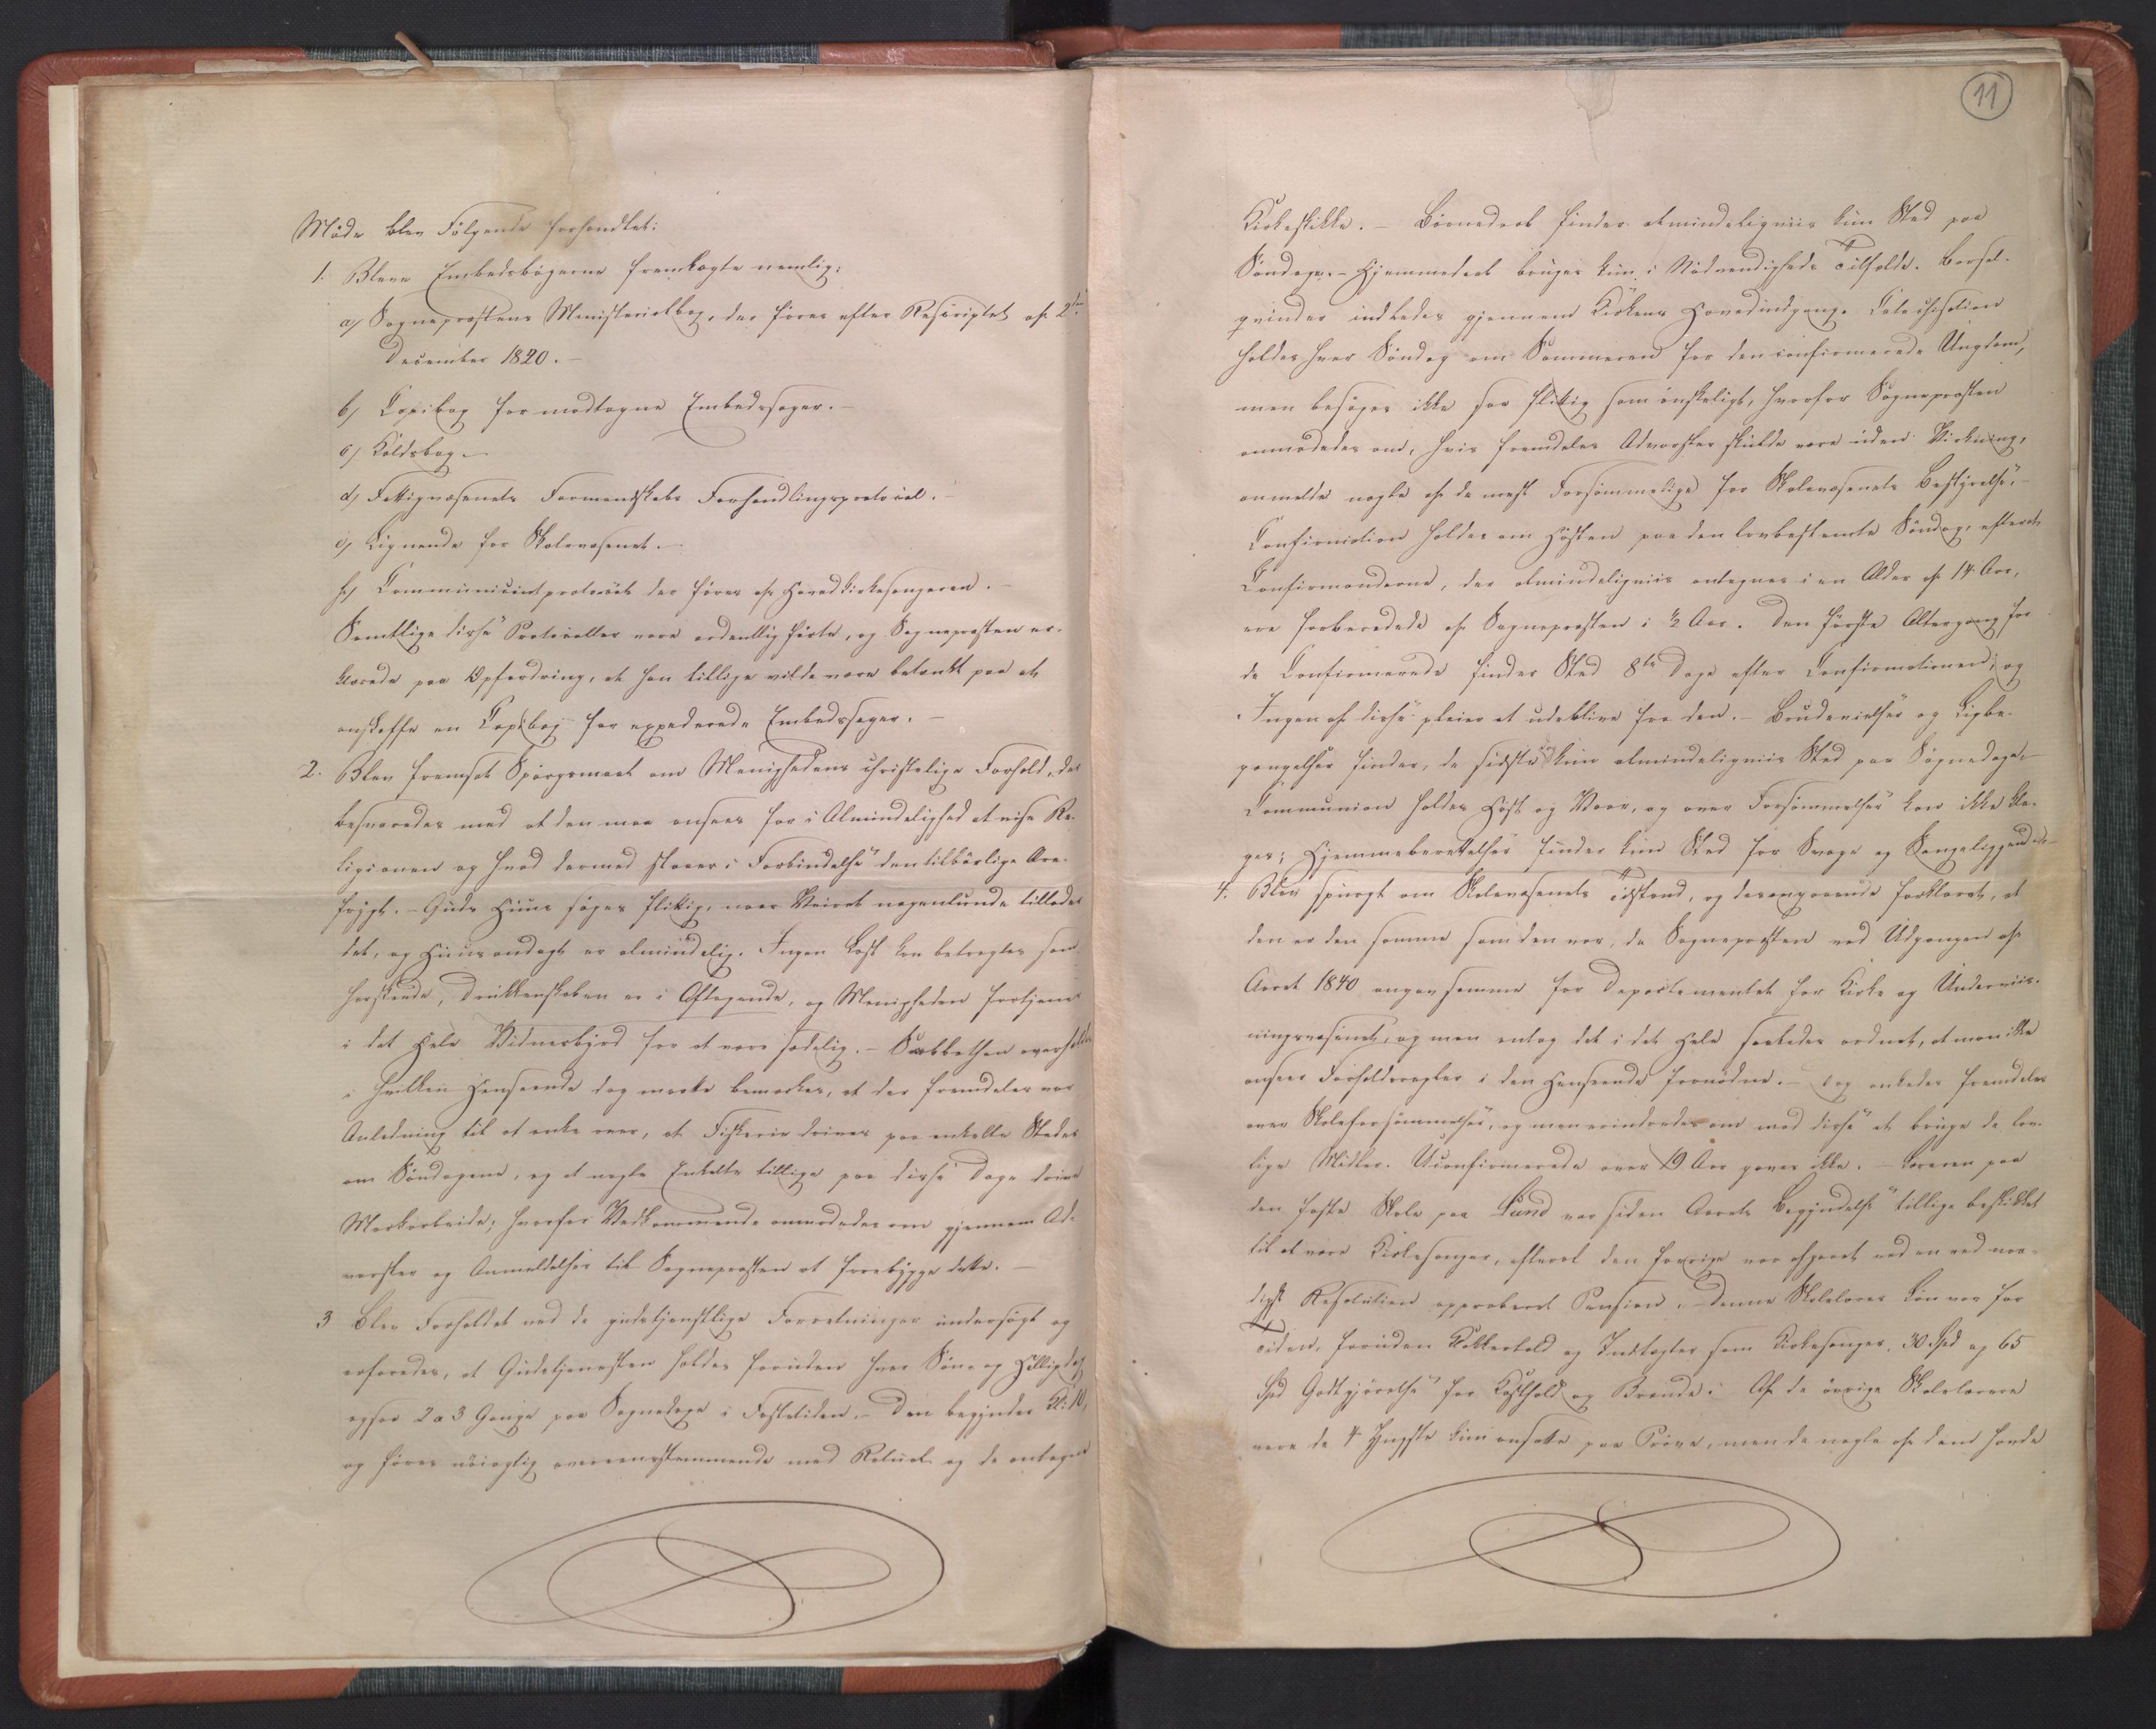 Møde blev Følgende forhandlet:
1. Bleve Embedsbøgerne fremlagte nemlig:
a, Sognepræstens Ministerialbog, der føres efter Rescriptet af 2den
December 1820. -
b, Copibog for modtagne Embedssager. -
c, Kaldsbog. -
d, Fattigvæsenets Formandskabs Forhandlingsprotocol. -
e, Lignende for Skolevæsenet. -
f, Communicantprotocol der føres af Hovedkirkesangeren. -
Samtlige disse Protocoller vare ordentlig førte, og Sognepræsten er-
klærede paa Opfordring, at han tillige vilde være betænkt paa at
anskaffe en Copibog for expederede Embedssager. -
2. Blev fremsat Spørgsmaal om Menighedens christelige Forhold, der
besvaredes med at den maa ansees for i Almindelighed at vise Re-
ligionen og hvad dermed staaer i Forbindelse den tilbørlige Ære-
frygt. - Guds Huus søges flittig, naar Veiret nogenlunde tillader
det, og Huusandagt er almindelig. Ingen Last kan betragtes som
herskende, Drukkenskaben er i Aftagende, og Menigheden fortjener
i det Hele Vidnesbyrd for at være sædelig. - Sabbathen overholdes
i hvilken Henseende dog maatte bemærkes, at der fremdeles var
Anledning til at anke over, at Fiskerie drives paa enkelte Steder
om Søndagene, og at nogle Enkelte tillige paa disse Dage drive
Markarbeide; hvorfor Vedkommende anmodedes om gjennem Ad-
varsler og Anmeldelser til Sognepræsten at forebygge dette. -
3 Blev Forholdet ved de gudstjenstlige Forretninger undersøgt og
erfaredes, at Gudstjenesten holdes foruden hver Søn- og Helligdag
ogsaa 2 a 3 Gange paa Søgnedage i Fastetiden. - Den begynder Kl: 10,
og føres nøiagtig overeensstemmende med Ritual og de antagne
11
Kirkeskikke. - Børnedaab finder almindeligviis kun Sted paa
Søndage. - Hjemmedaab bruges kun i Nødvendigheds Tilfælde. Barsel-
qvinder indledes gjennem Kirkens Hovedindgang. Catechisation
holdes hver Søndag om Sommeren for den confirmerede Ungdom,
men besøges ikke saa flittig som ønskeligt, hvorfor Sognepræsten
anmodedes om, hvis fremdeles Advarsler skulde være uden Virkning,
anmelde nogle af de mest Forsømmelige for Skolevæsenets Bestyrelse, -
Confirmation holdes om Høsten paa den lovbestemte Søndag, efterat
Confirmanderne, der almindeligviis antegnes i en Alder af 14 Aar,
ere forberedede af Sognepræsten i ½ Aar. Den første Altergang for
de Confirmerede finder Sted 8te Dage efter Confirmationen, og
Ingen af disse pleier at udeblive fra den. - Brudevielser og Ligbe-
gængelser finder, de sidste dog kun almindeligviis Sted paa Søgnedage. -
Communion holdes Høst og Vaar, og over Forsømmelser kan ikke kla-
ges; Hjemmeberettelser finder kun Sted for Svage og Sengeliggende
4. Blev spurgt om Skolevæsenets Tilstand, og desangaaende forklaret, at
den er den samme som den var, da Sognepræsten ved Udgangen af
Aaret 1840 angav samme for Departementet for Kirke og Underviis-
ningsvæsenet, og man antog det i det Hele saaledes ordnet, at man ikke
ansees Forholdsregler i den Henseende fornødne. - Dog ankedes fremdeles
over Skoleforsømmelser, og man erindredes om mod disse at bruge de lov-
lige Midler. Uconfirmerede over 19 Aar gaves ikke. - Læreren paa
den faste Skole paa Lund var siden Aarets Begyndelse tillige beskikket
til at være Kirkesanger, efterat den forrige var afgaaet ved en ved naa-
digst Resolution approberet Pension. - Denne Skolelærer Løn var for
Tiden, foruden Klokkertold og Indtægter som Kirkesanger, 30 Spd og 65
Spd Godtgjørelse for Kosthold og Brænde. Af de øvrige Skolelærere
vare de 4 Yngste kun ansatte paa Prøve, men da nogle af dem havde